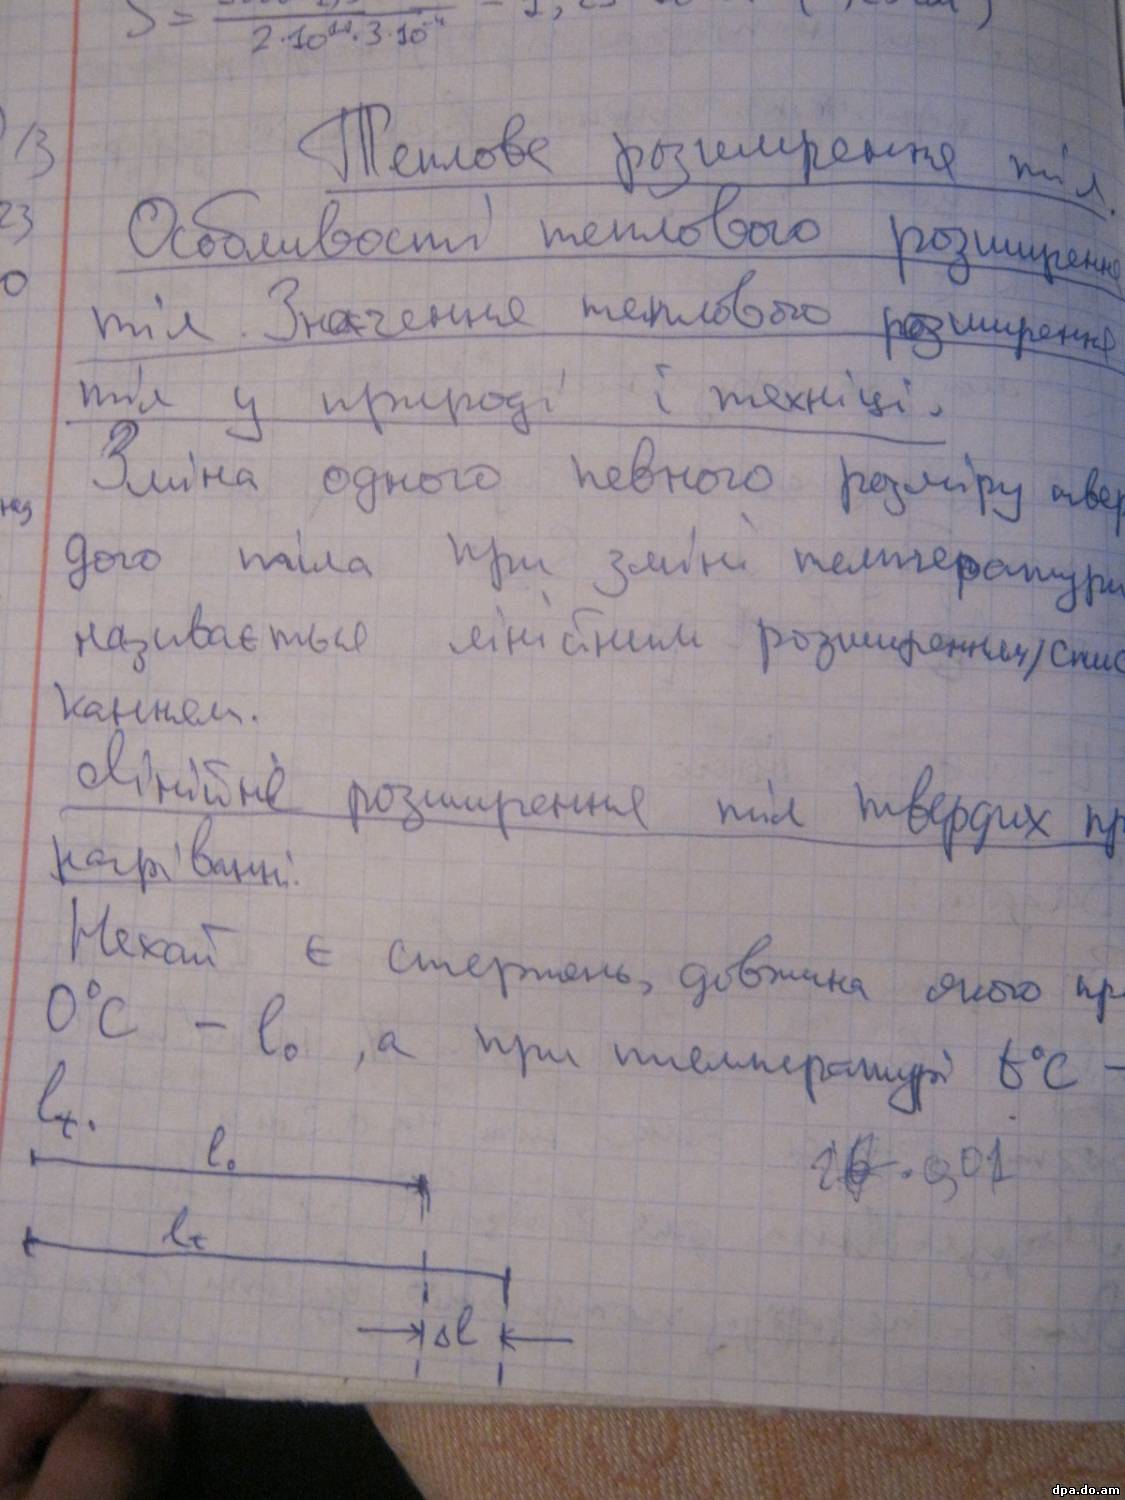 2·10¹¹·3·10⁻⁴
13
23
0
Теплове розширення тіл.
Особливості теплового розширення
тіл. Значення теплового розширення
тіл у природі і техніці.
Зміна одного певного розміру твер
дого тіла при зміні температури
називається лінійним розширенням/стис
канням.
Лінійне розширення тіл твердих пр
нагріванні.
Нехай є стержень, довжина якого пр
0°C - l₀, а при температурі t°C -
lₜ.
l₀
lₜ
Δl
dpa.do.am